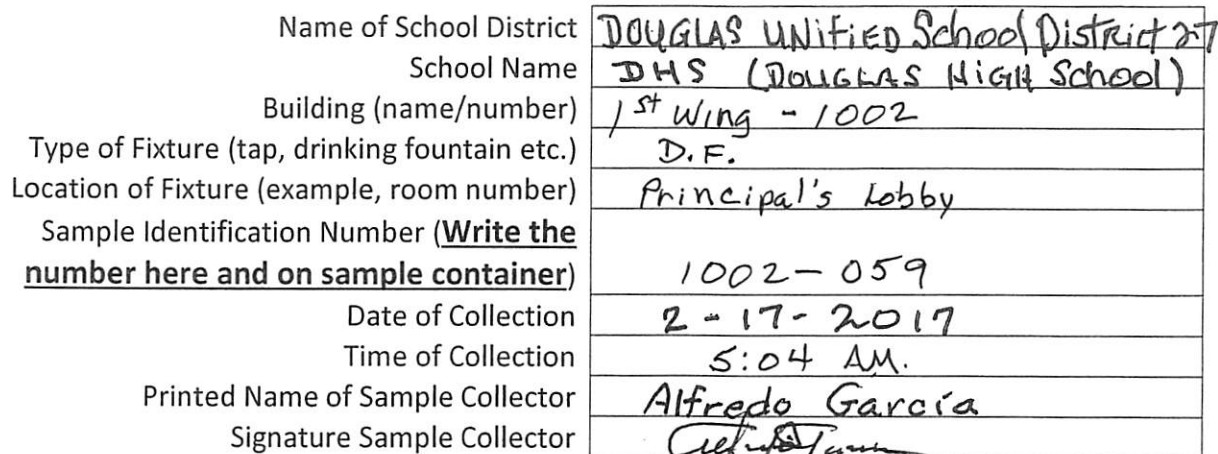 Name of School District DOUGLAS UNiFiED School District 27
School Name DHS (DOUGLAS HiGH School)
Building (name/number) 1st Wing - 1002
Type of Fixture (tap, drinking fountain etc.) D.F.
Location of Fixture (example, room number) Principal's Lobby
Sample Identification Number (Write the
number here and on sample container) 1002-059
Date of Collection 2-17-2017
Time of Collection 5:04 AM.
Printed Name of Sample Collector Alfredo García
Signature Sample Collector